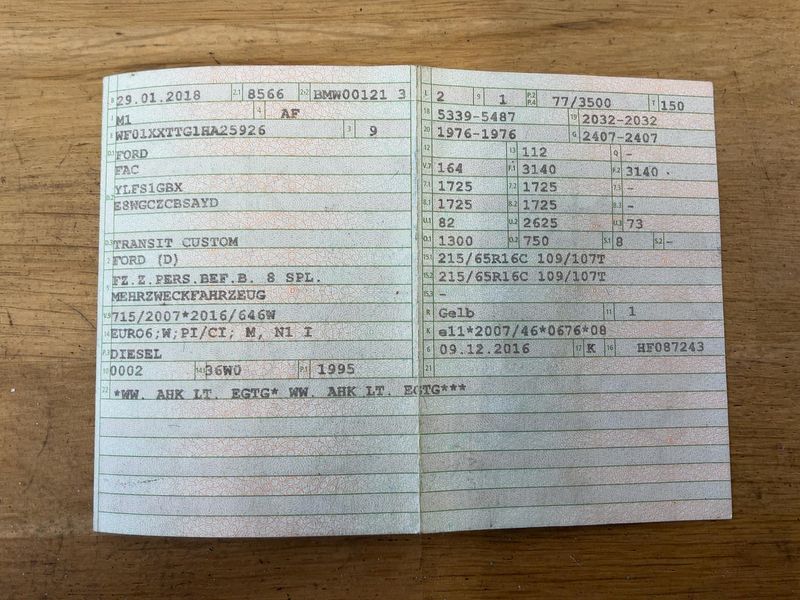 B 29.01.2018 2.1 8566 2.2 BMW00121 3
J M1 4 AF
E WF01XXTTG1HA25926 3 9
D.1 FORD
FAC
D.2 YLFS1GBX
E8WGCZCBSAYD
D.3 TRANSIT CUSTOM
2 FORD (D)
5 FZ.Z.PERS.BEF.B. 8 SPL.
MEHRZWECKFAHRZEUG
V.9 715/2007*2016/646W
14 EURO6;W;PI/CI; M, N1 I
P.3 DIESEL
10 0002 14.1 36W0 P.1 1995
22 *WW. AHK LT. EGTG* WW. AHK LT. EGTG***
L 2 9 1 P.2 P.4 77/3500 T 150
18 5339-5487 19 2032-2032
20 1976-1976 G 2407-2407
12 13 112 Q -
V.7 164 F.1 3140 F.2 3140
7.1 1725 7.2 1725 7.3 -
8.1 1725 8.2 1725 8.3 -
U.1 82 U.2 2625 U.3 73
O.1 1300 O.2 750 S.1 8 S.2 -
15.1 215/65R16C 109/107T
15.2 215/65R16C 109/107T
15.3 -
R Gelb 11 1
K e11*2007/46*0676*08
6 09.12.2016 17 K 16 HF087243
21